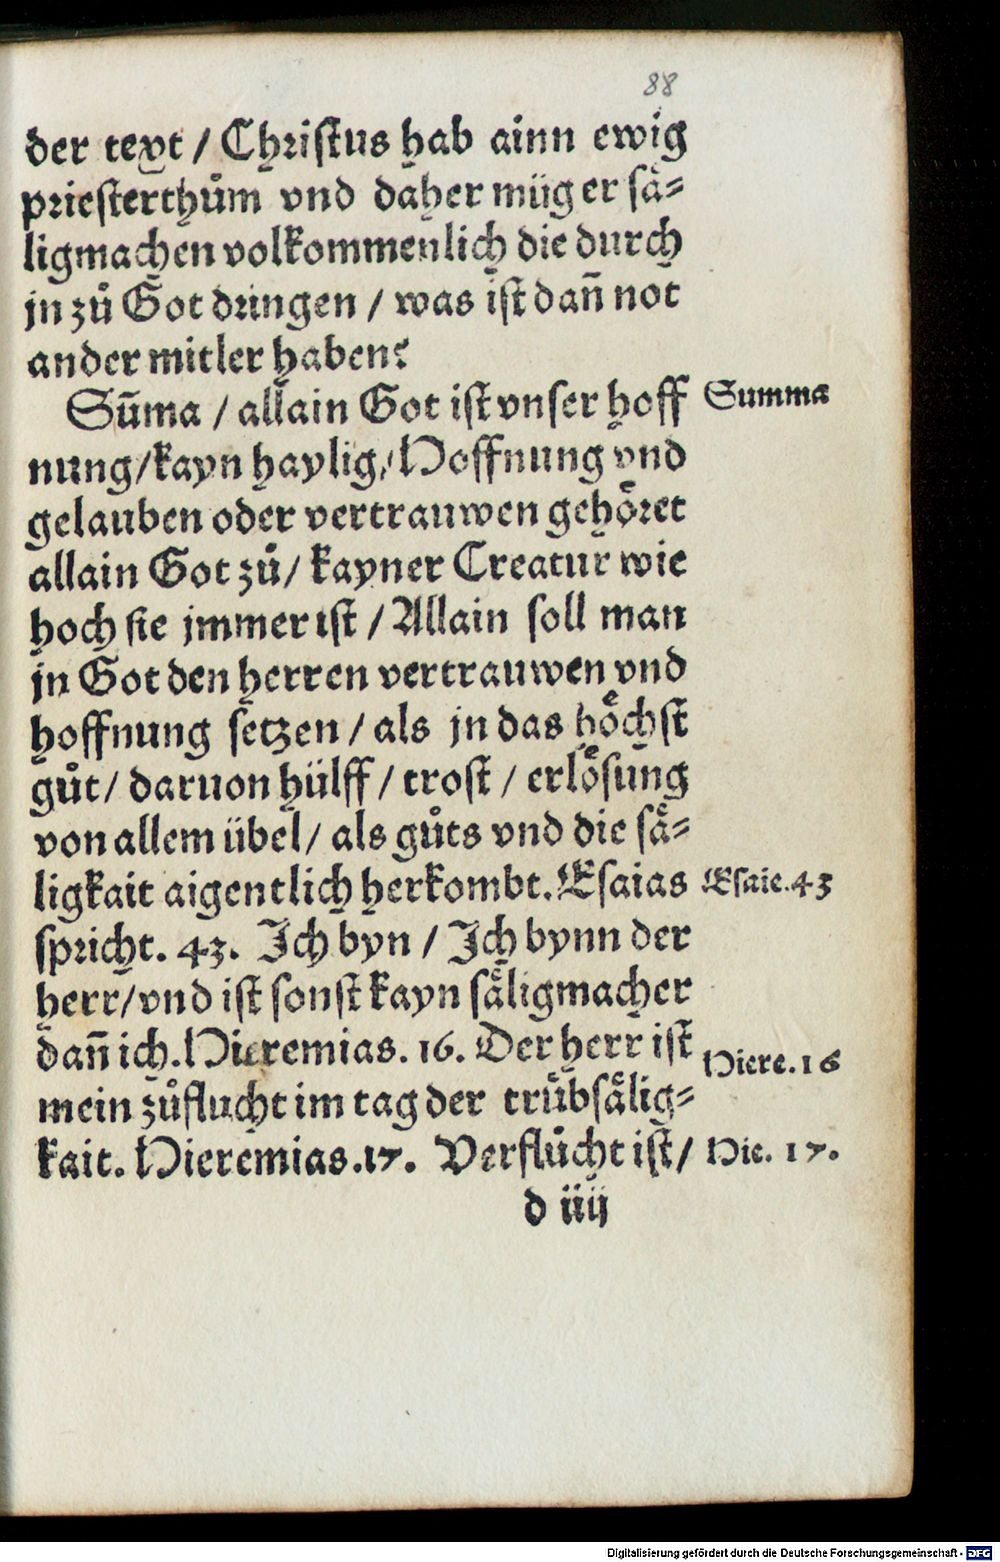 88
der text / Christus hab ainn ewig
priesterthuͦm vnd daher müg er saͤ⸗
ligmachen volkommenlich die durch
jn zuͦ Got dringen / was ist dañ not
ander mitler haben?
Sum̃a / allain Got ist vnser hoff Summa
nung / kayn haylig / Hoffnung vnd
gelauben oder vertrauwen gehoͤret
allain Got zuͦ / kayner Creatur wie
hoch sie jmmer ist / Allain soll man
jn Got den herren vertrauwen vnd
hoffnung setzen / als jn das hoͤchst
guͦt / daruon hülff / trost / erloͤsung
von allem übel / als guͦts vnd die saͤ⸗
ligkait aigentlich herkombt. Esaias Esaie. 43
spricht. 43. Ich byn / Ich bynn der
herr / vnd ist sonst kayn saͤligmacher
dañ ich. Hieremias. 16. Der herr ist Hiere. 16
mein zuͦflucht im tag der truͤbsaͤlig⸗
kait. Hieremias. 17. Verfluͦcht ist / Hie. 17.
d iiij
Digitalisierung gefördert durch die Deutsche Forschungsgemeinschaft - DFG